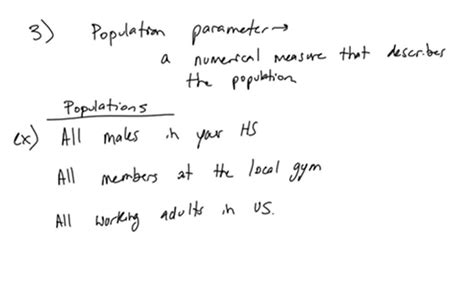 3) Population parameter→
a numerical measure that describes
the population
Populations
ex) All males in your HS
All members at the local gym
All working adults in US.